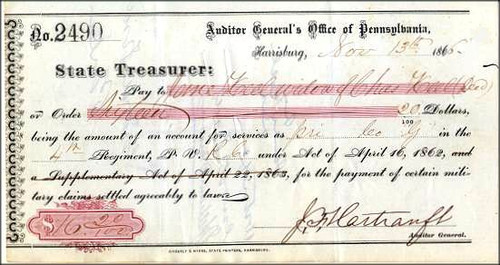 Auditor General's Office of Pennsylvania,
No. 2490
Harrisburg, Nov 13th 1865
State Treasurer:
Pay to widow of Chas
or Order Sixteen 20/100 Dollars,
being the amount of an account for services as pri Co in the
4th Regiment, P. V. R. C. under Act of April 16, 1862, and
a Supplementary Act of April 22, 1863, for the payment of certain mili-
tary claims settled agreeably to law.
$16 20/100
J. F. Hartranft
Auditor General.
SINGERLY & MYERS, STATE PRINTERS, HARRISBURG.